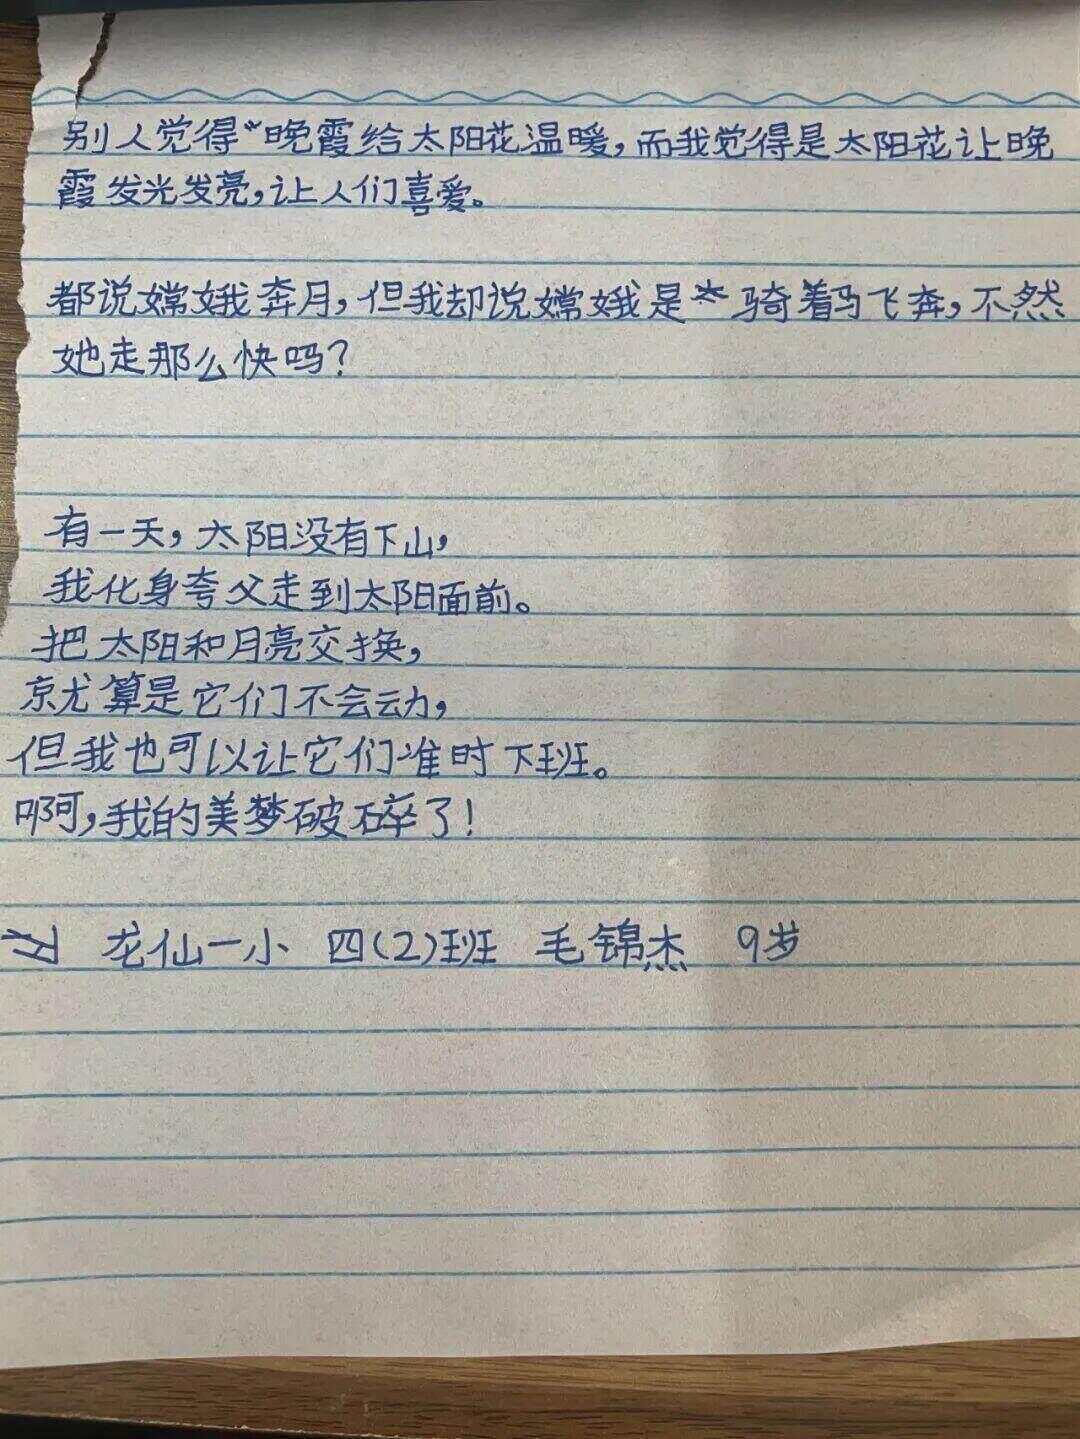 别人觉得“晚霞给太阳花温暖，而我觉得是太阳花让晚
霞发光发亮，让人们喜爱。
都说嫦娥奔月，但我却说嫦娥是骑着马飞奔，不然
她走那么快吗？
有一天，太阳没有下山，
我化身夸父走到太阳面前。
把太阳和月亮交换，
就算是它们不会动，
但我也可以让它们准时下班。
啊，我的美梦破碎了！
龙仙一小 四（2）班 毛锦杰 9岁